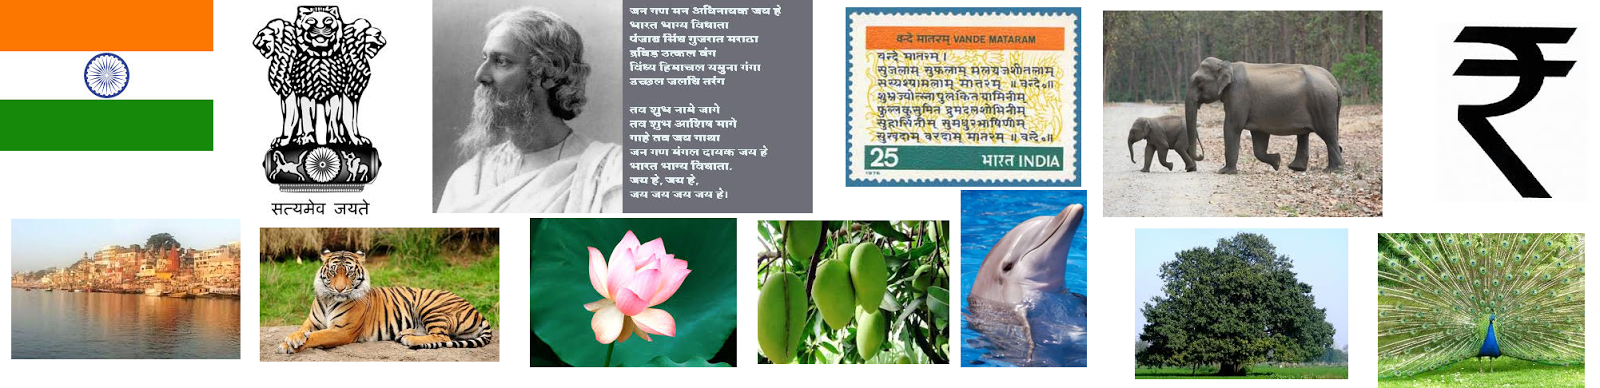 सत्यमेव जयते
जन गण मन अधिनायक जय हे
भारत भाग्य विधाता
पंजाब सिंध गुजरात मराठा
द्रविड़ उत्कल बंग
विंध्य हिमाचल यमुना गंगा
उच्छल जलधि तरंग
तव शुभ नामे जागे
तव शुभ आशिष मागे
गाहे तव जय गाथा
जन गण मंगल दायक जय हे
भारत भाग्य विधाता.
जय हे, जय हे,
जय जय जय जय हे।
वन्दे मातरम् VANDE MATARAM
वन्दे मातरम् ।
सुजलाम् सुफलाम् मलयजशीतलाम्
सस्यश्यामलाम् मातरम् ॥ वन्दे॰॥
शुभ्रज्योत्स्नापुलकित यामिनीम्
फुल्लकुसुमित द्रुमदलशोभिनीम्
सुहासिनीम् सुमधुरभाषिणीम्
सुखदाम् वरदाम् मातरम् ॥ वन्दे॰॥
25 भारत INDIA
1976
₹